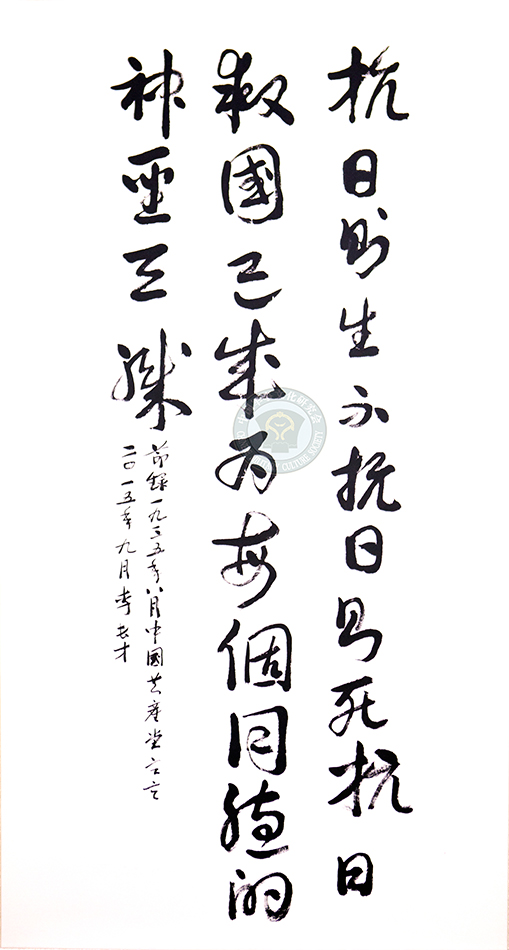 抗日則生不抗日則死抗日
救國已成为每個同胞的
神聖天職
節錄一九三五年八月中國共產党宣言
二〇一五年九月李长才
化研究会
CULTURE SOCIETY